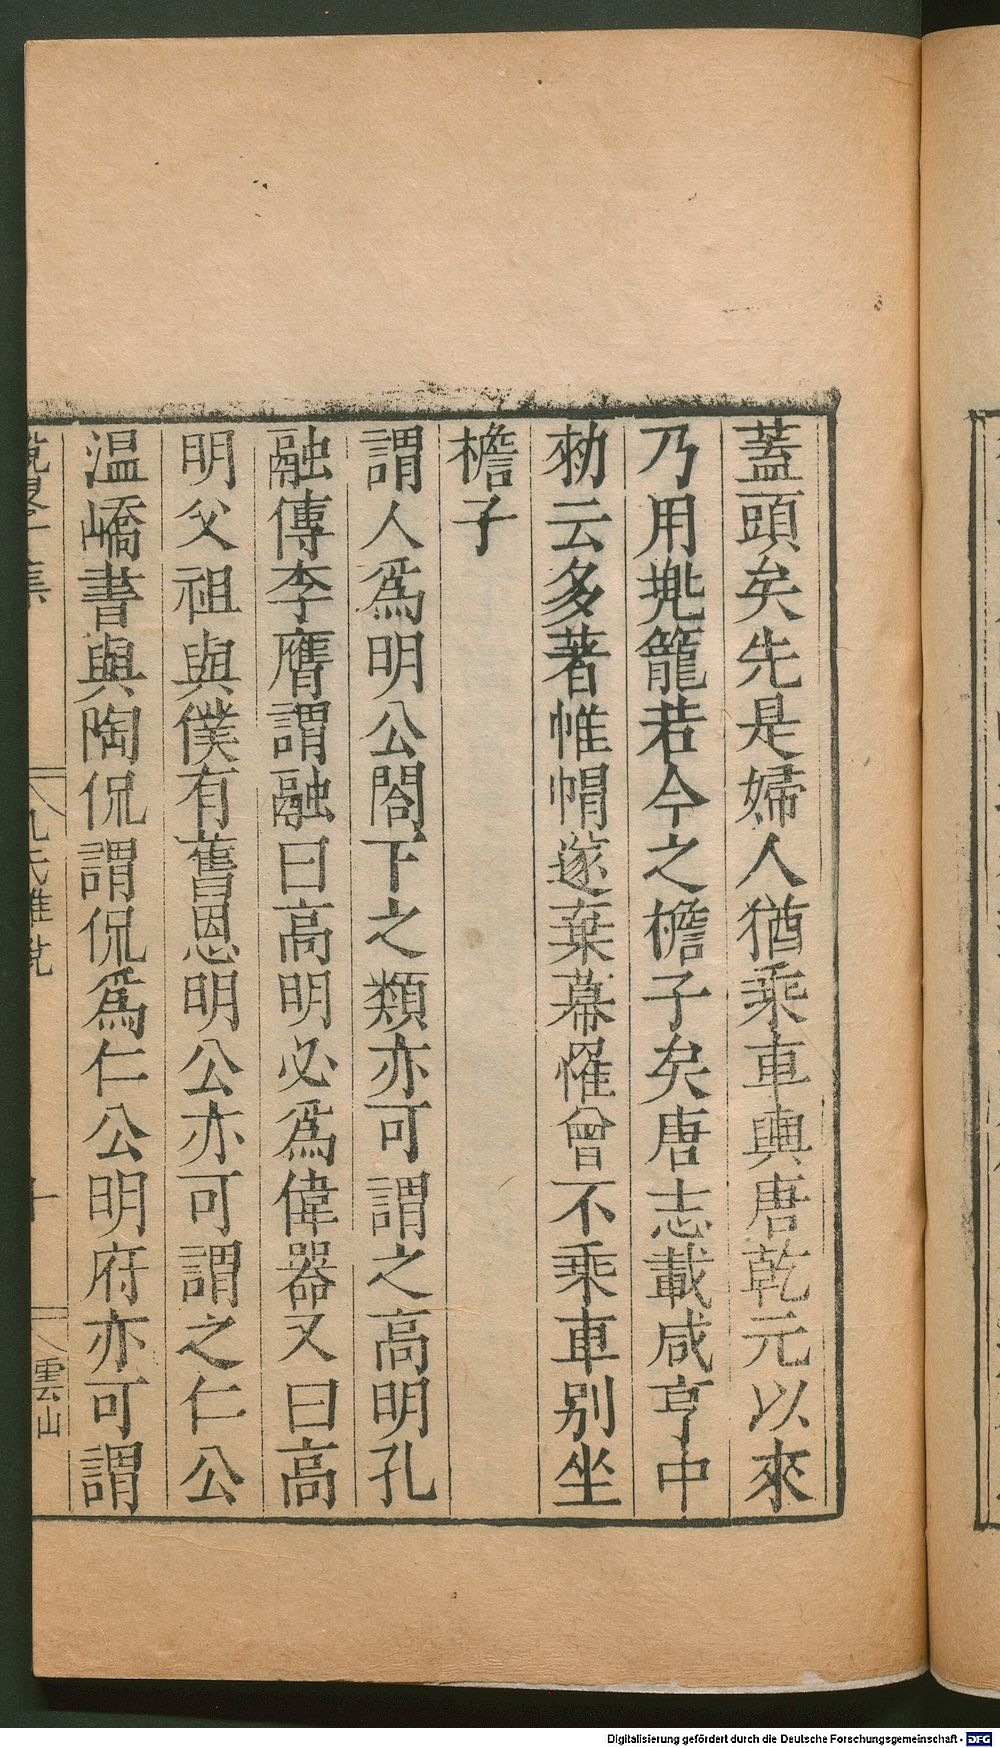 蓋頭矣先是婦人猶乘車輿唐乾元以來
乃用兠籠若今之檐子矣唐志載咸亨中
勑云多著帷帽遂棄幕䍦曾不乘車別坐
檐子
謂人爲明公閤下之類亦可謂之高明孔
融傳李膺謂融曰高明必爲偉器又曰高
明父祖與僕有舊恩明公亦可謂之仁公
温嶠書與陶侃謂侃爲仁公明府亦可謂
孔氏雜說
十
雲山
Digitalisierung gefördert durch die Deutsche Forschungsgemeinschaft - DFG